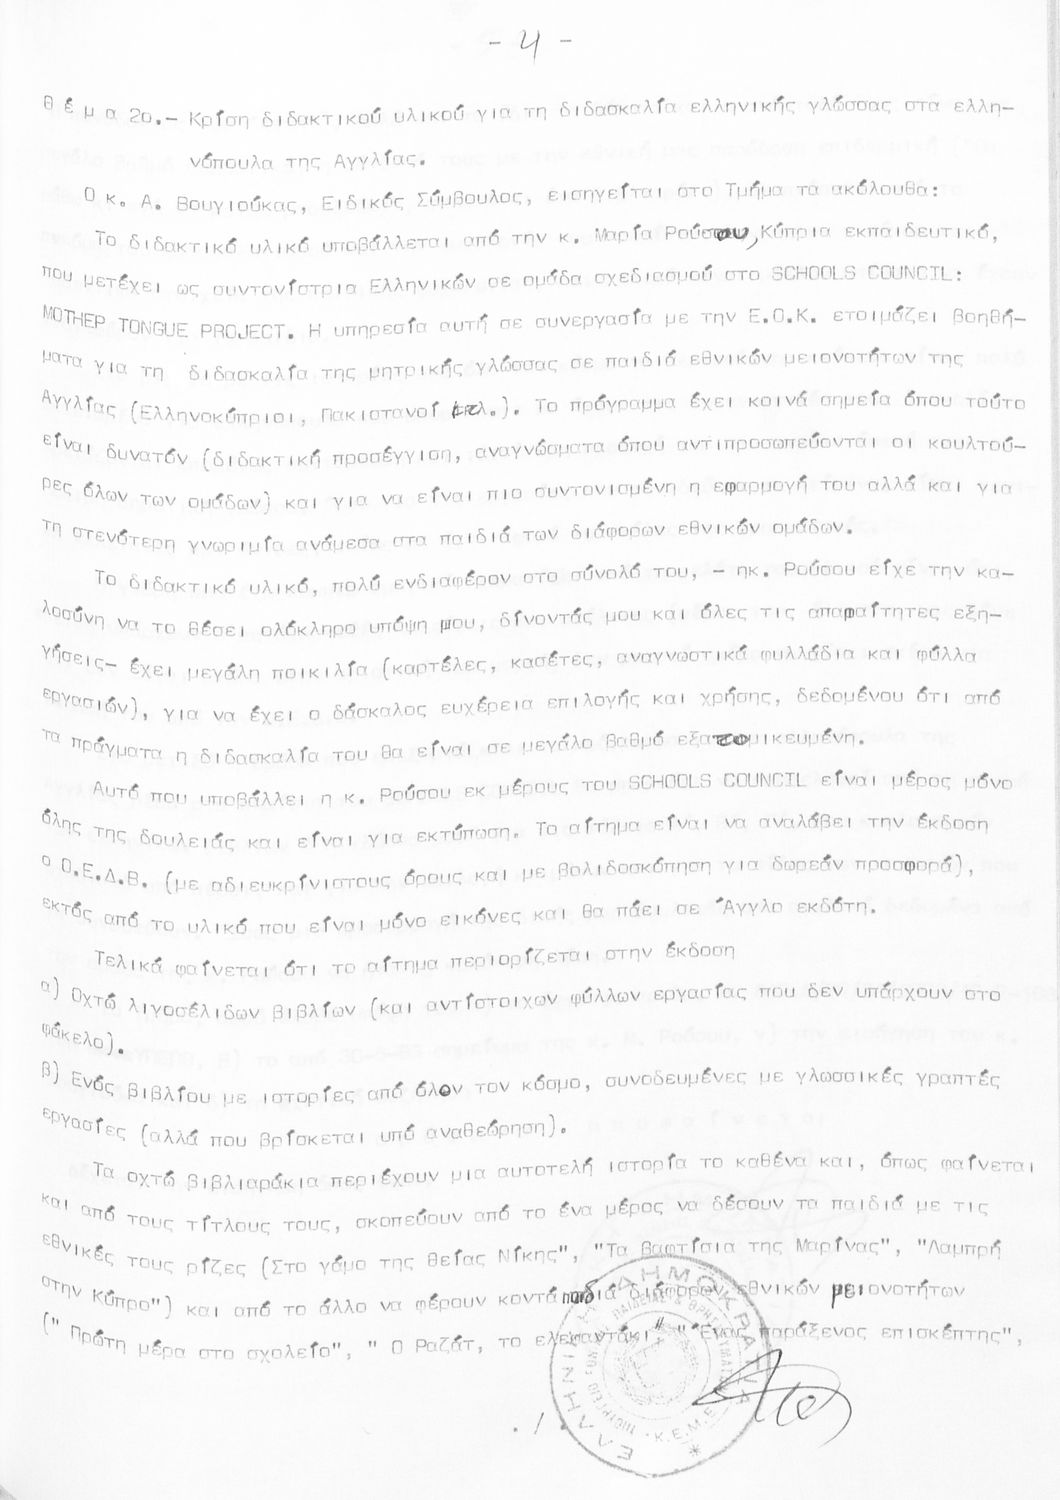 - 4 -
Θ έ μ α 2ο.- Κρίση διδακτικού υλικού για τη διδασκαλία ελληνικής γλώσσας στα ελλη-
νόπουλα της Αγγλίας.
Ο κ. Α. Βουγιούκας, Ειδικός Σύμβουλος, εισηγείται στο Τμήμα τα ακόλουθα:
Το διδακτικό υλικό υποβάλλεται από την κ. Μαρία Ρούσου, Κύπρια εκπαιδευτικό,
που μετέχει ως συντονίστρια Ελληνικών σε ομάδα σχεδιασμού στο SCHOOLS COUNCIL:
MOTHEP TONGUE PROJECT. Η υπηρεσία αυτή σε συνεργασία με την Ε.Ο.Κ. ετοιμάζει βοηθή-
ματα για τη διδασκαλία της μητρικής γλώσσας σε παιδιά εθνικών μειονοτήτων της
Αγγλίας (Ελληνοκύπριοι, Πακιστανοί κτλ.). Το πρόγραμμα έχει κοινά σημεία όπου τούτο
είναι δυνατόν (διδακτική προσέγγιση, αναγνώσματα όπου αντιπροσωπεύονται οι κουλτού-
ρες όλων των ομάδων) και για να είναι πιο συντονισμένη η εφαρμογή του αλλά και για
τη στενότερη γνωριμία ανάμεσα στα παιδιά των διάφορων εθνικών ομάδων.
Το διδακτικό υλικό, πολύ ενδιαφέρον στο σύνολό του, - ηκ. Ρούσου είχε την κα-
λοσύνη να το θέσει ολόκληρο υπόψη μου, δίνοντάς μου και όλες τις απαραίτητες εξη-
γήσεις- έχει μεγάλη ποικιλία (καρτέλες, κασέτες, αναγνωστικά φυλλάδια και φύλλα
εργασιών), για να έχει ο δάσκαλος ευχέρεια επιλογής και χρήσης, δεδομένου ότι από
τα πράγματα η διδασκαλία του θα είναι σε μεγάλο βαθμό εξατομικευμένη.
Αυτό που υποβάλλει η κ. Ρούσου εκ μέρους του SCHOOLS COUNCIL είναι μέρος μόνο
όλης της δουλειάς και είναι για εκτύπωση. Το αίτημα είναι να αναλάβει την έκδοση
ο Ο.Ε.Δ.Β. (με αδιευκρίνιστους όρους και με βολιδοσκόπηση για δωρεάν προσφορά),
εκτός από το υλικό που είναι μόνο εικόνες και θα πάει σε Άγγλο εκδότη.
Τελικά φαίνεται ότι το αίτημα περιορίζεται στην έκδοση
α) Οχτώ λιγοσέλιδων βιβλίων (και αντίστοιχων φύλλων εργασίας που δεν υπάρχουν στο
φάκελο).
β) Ενός βιβλίου με ιστορίες από όλον τον κόσμο, συνοδευμένες με γλωσσικές γραπτές
εργασίες (αλλά που βρίσκεται υπό αναθεώρηση).
Τα οχτώ βιβλιαράκια περιέχουν μια αυτοτελή ιστορία το καθένα και, όπως φαίνεται
και από τους τίτλους τους, σκοπεύουν από το ένα μέρος να δέσουν τα παιδιά με τις
εθνικές τους ρίζες (Στο γάμο της θείας Νίκης", "Τα βαφτίσια της Μαρίνας", "Λαμπρή
στην Κύπρο") και από το άλλο να φέρουν κοντά παιδιά διάφορων εθνικών μειονοτήτων
(" Πρώτη μέρα στο σχολείο", " Ο Ραζάτ, το ελεφαντάκι" "Ένας παράξενος επισκέπτης",
./.
ΕΛΛΗΝΙΚΗ ΔΗΜΟΚΡΑΤΙΑ
Κ.Ε.Μ.Ε.